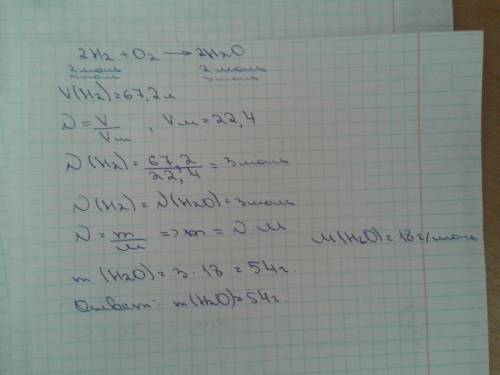 2H2 + O2 → 2H2O
2 моль 2 моль
3 моль 3 моль
V(H2)=67,2 л
ν = V/Vм , Vм = 22,4
ν(H2) = 67,2/22,4 = 3 моль
ν(H2) = ν(H2O) = 3 моль
ν = m/M => m = ν M M(H2O) = 18 г/моль
m (H2O) = 3 · 18 = 54 г.
Ответ: m(H2O) = 54 г.